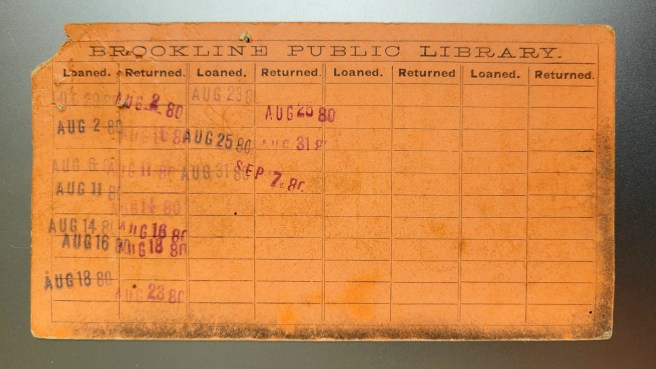 BROOKLINE PUBLIC LIBRARY.
Loaned. Returned. Loaned. Returned. Loaned. Returned Loaned. Returned.
AUG 2 80 AUG 23 80
AUG 25 80
AUG 2 80 AUG 25 80 AUG 31 8
AUG 11 80 AUG 31 80 SEP 7 80
AUG 11 80
AUG 14 80
AUG 14 80 AUG 16 80
AUG 16 80 AUG 18 80
AUG 18 80
AUG 23 80